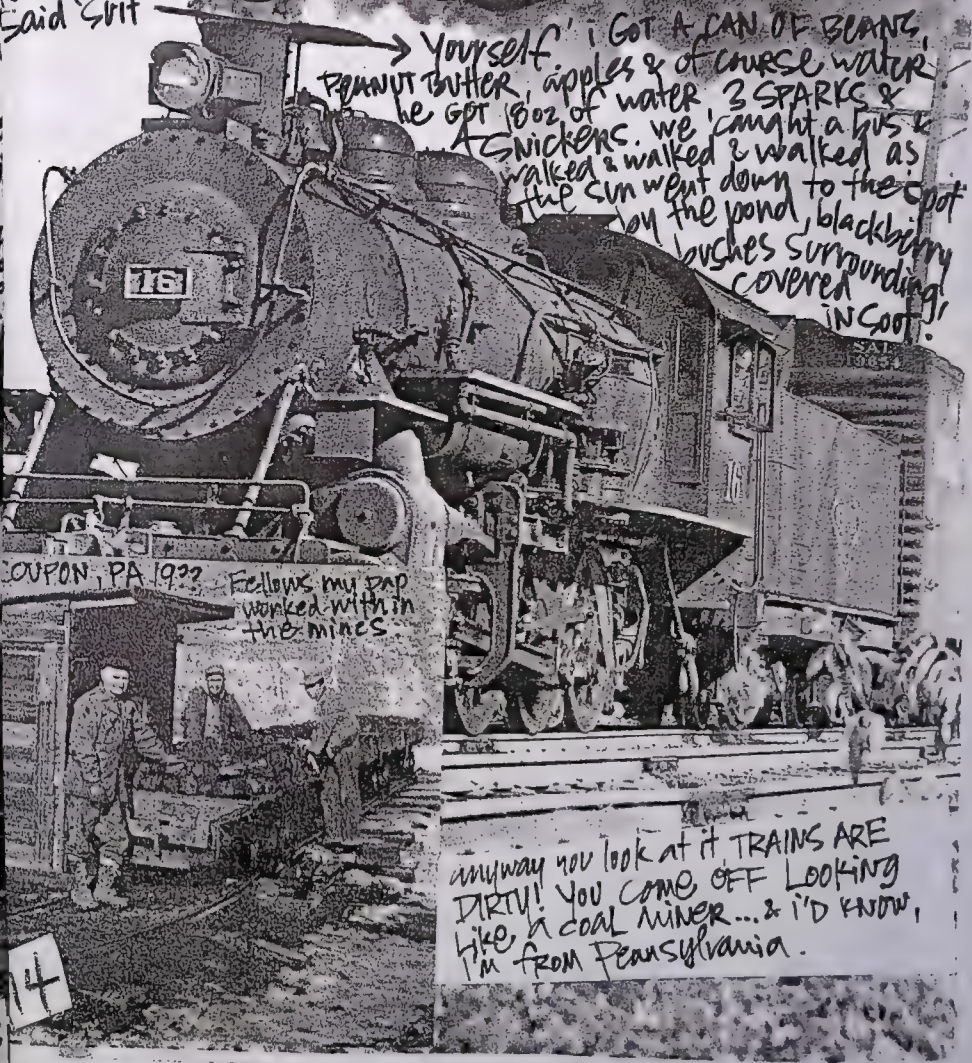 Said 'Suit
Yourself' i GOT A CAN OF BEANS,
PEANUT BUTTER, apples & of course water
he GOT 18oz of water, 3 SPARKS &
A SNICKERS. we caught a bus &
walked & walked & walked as
the sun went down to the spot
by the pond, blackberry
bushes surrounding,
covered
in soot!
16
COUPON, PA 19??
Fellows my pap
worked with in
the mines.
anyway you look at it, TRAINS ARE
DIRTY! YOU COME OFF LOOKING
Like a coal miner...& i'D KNOW,
i'm from Pennsylvania.
14